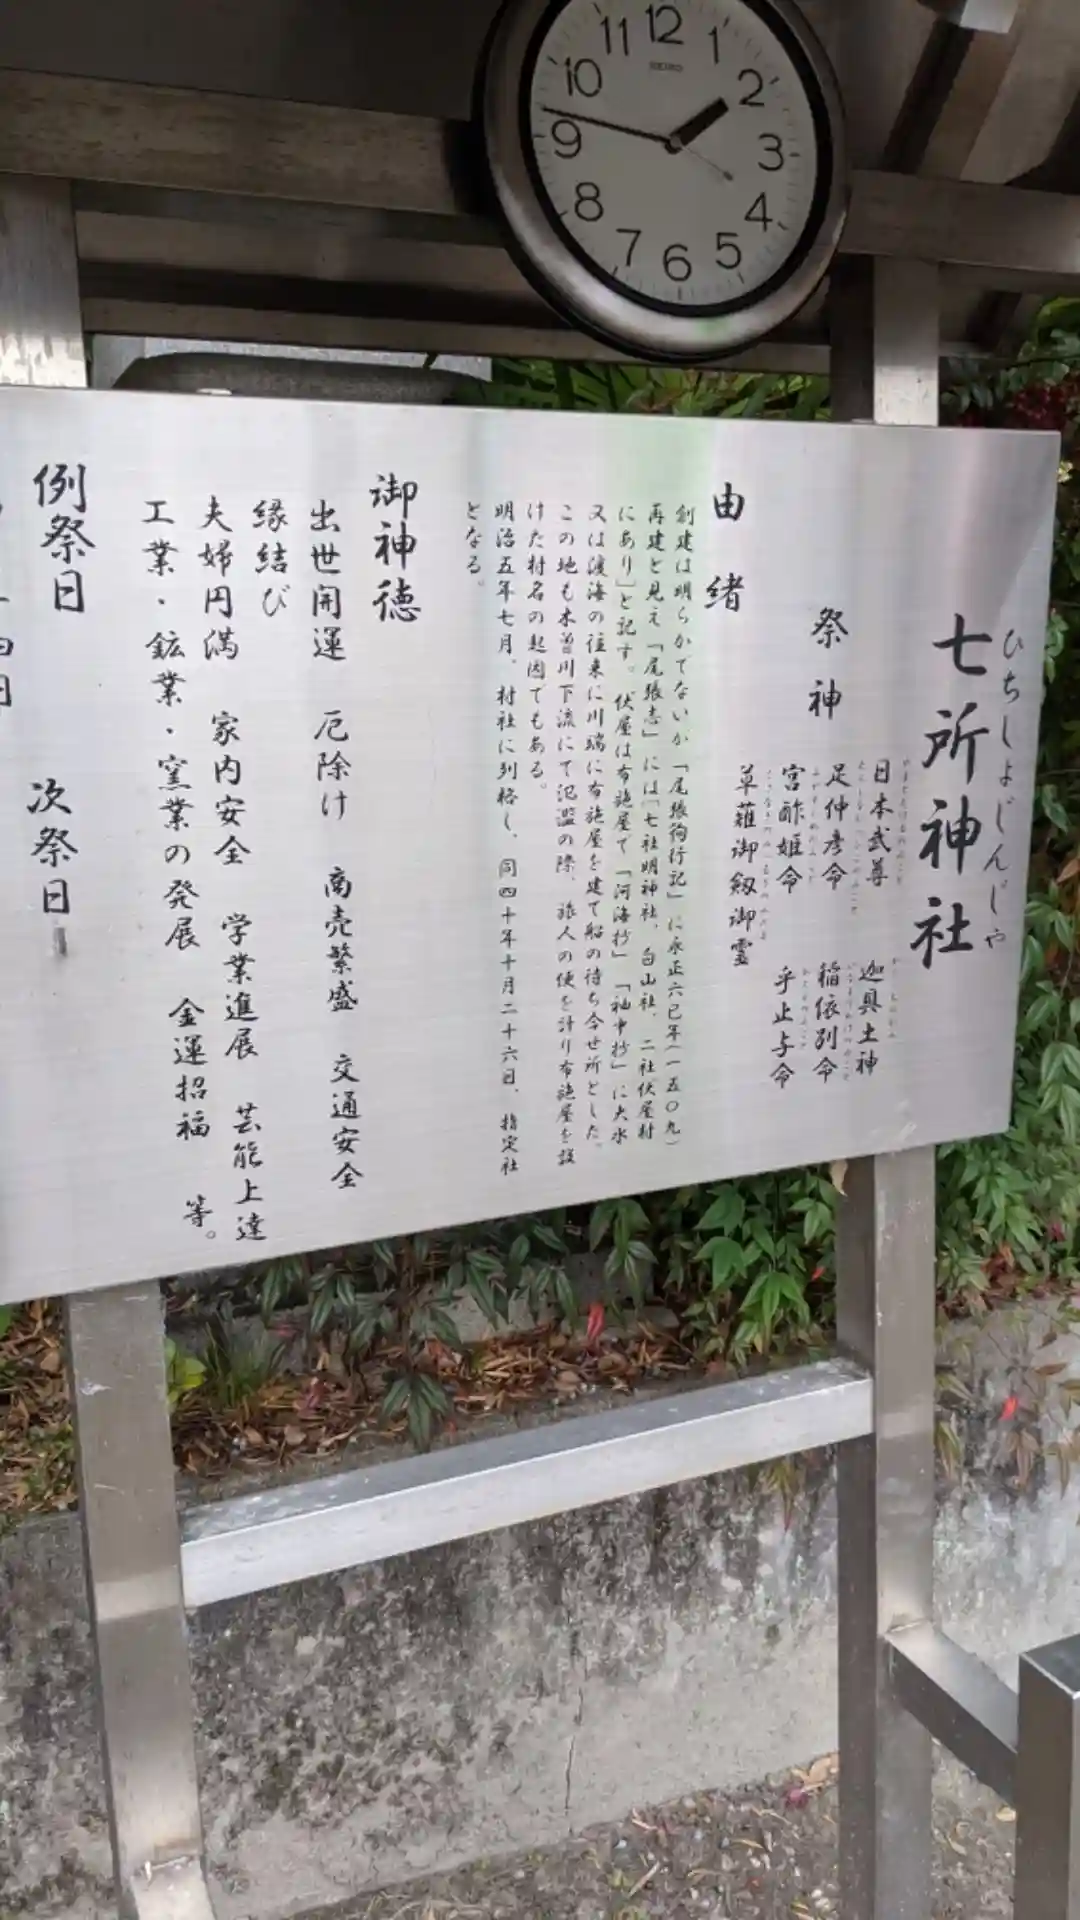 12
1
2
3
4
5
6
7
8
9
10
11
SEIKO
ひちしょじんじゃ
七所神社
祭神
日本武尊 迦具土神
足仲彦命 稲依別命
宮酢姫命 乎止与命
草薙御剱御霊
由緒
創建は明らかでないが「尾張徇行記」に永正六巳年(一五〇九)
再建と見え「尾張志」には「七社明神社、白山社、二社伏屋村
にあり」と記す。伏屋は布施屋で「河海抄」「袖中抄」に大水
又は渡海の往来に川端に布施屋を建て船の待ち合せ所とした。
この地も木曽川下流にて氾濫の際、旅人の便を計り布施屋を設
けた村名の起因でもある。
明治五年七月、村社に列格し、同四十年十月二十六日、指定社
となる。
御神徳
出世開運 厄除け 商売繁盛 交通安全
縁結び
夫婦円満 家内安全 学業進展 芸能上達
工業・鉱業・窯業の発展 金運招福 等。
例祭日 次祭日